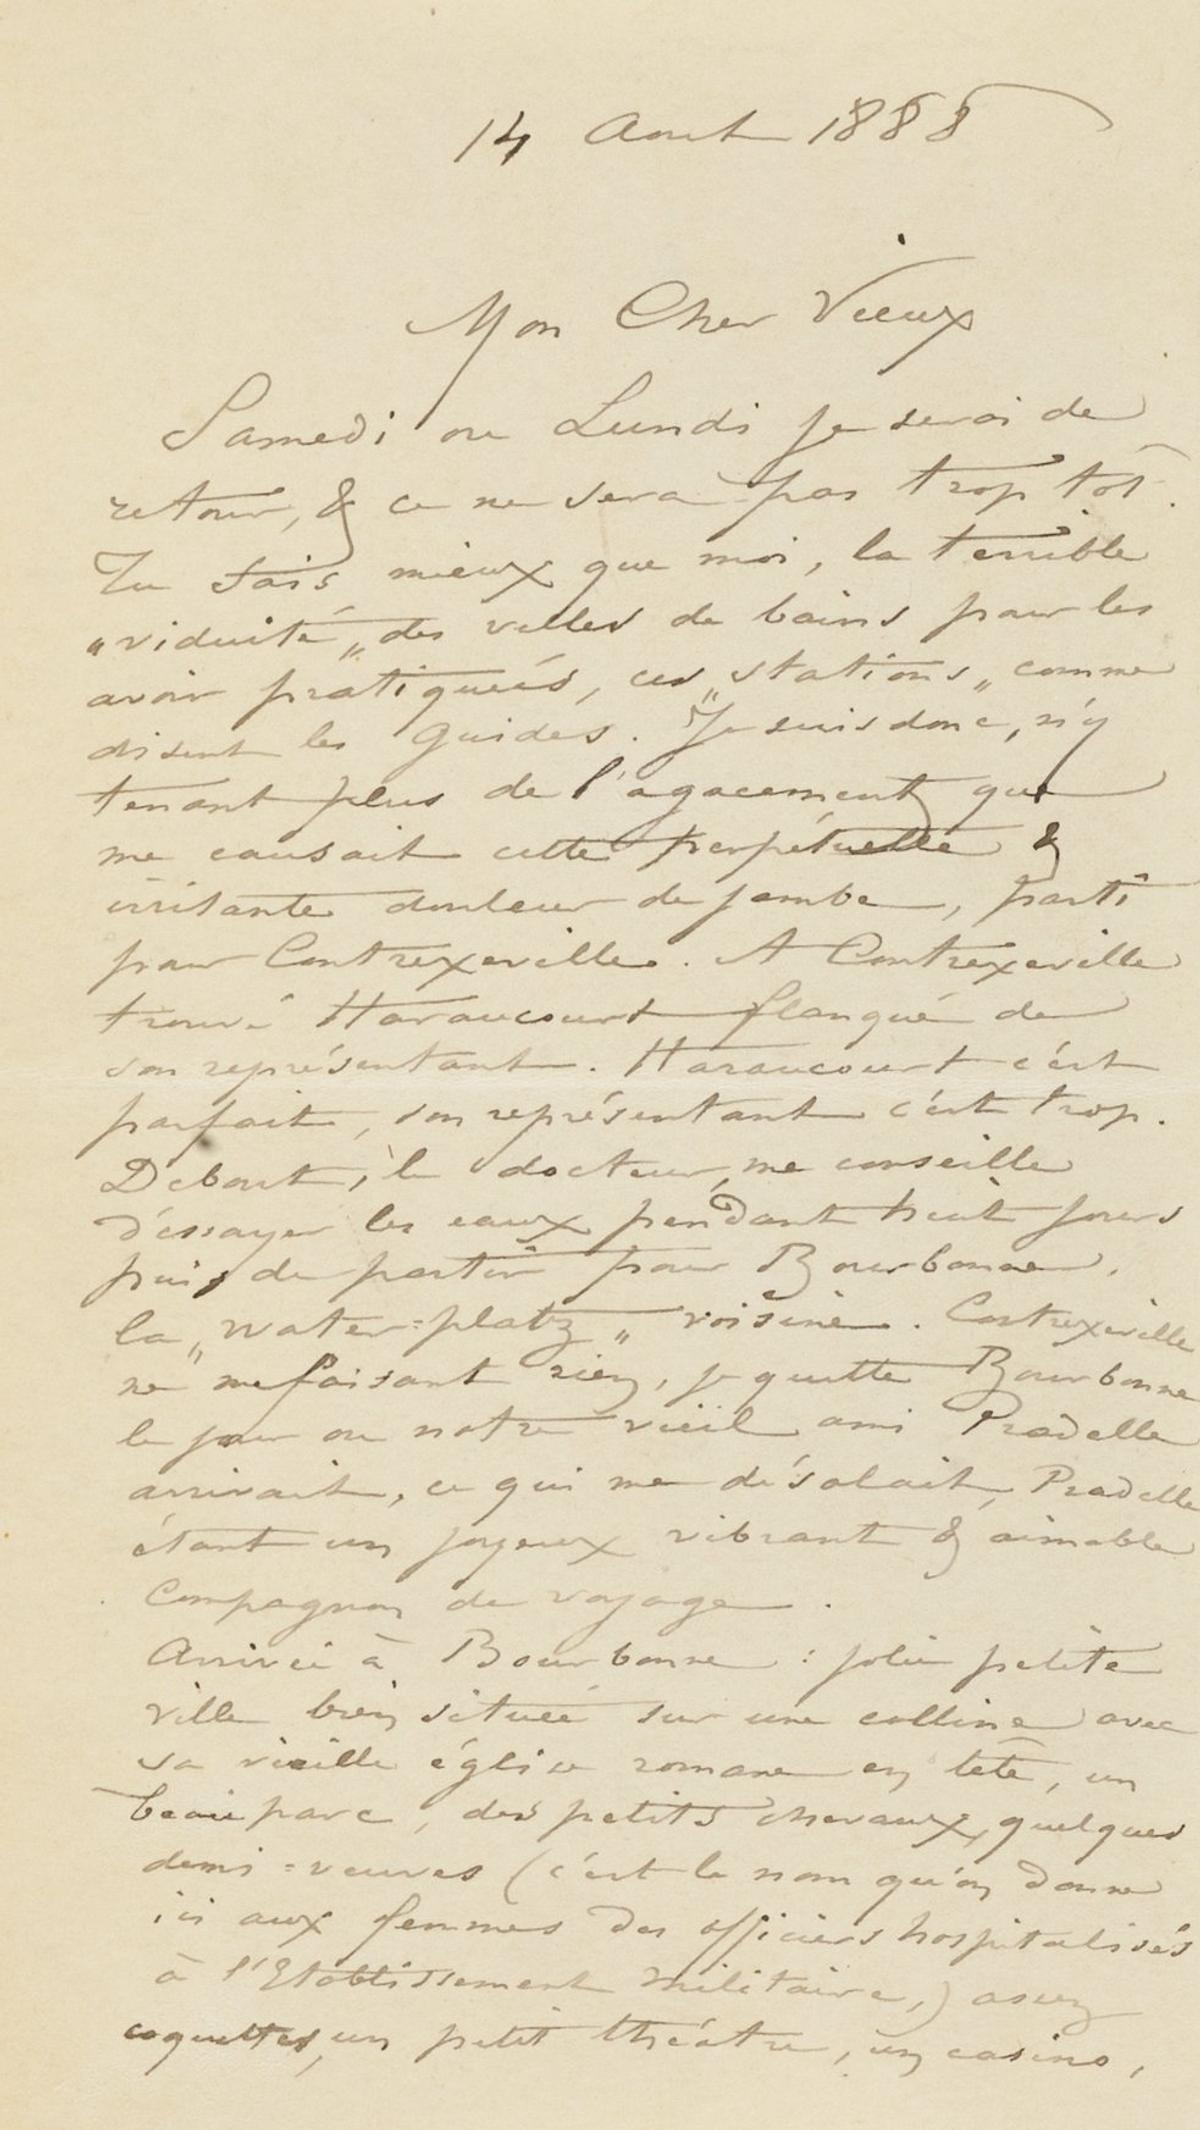 14 Aout 1888
Mon Cher Vieux
Samedi ou Lundi je serai de
retour, & ce ne sera pas trop tôt.
Tu sais mieux que moi, la terrible
"viduité" des villes de bains pour les
avoir pratiqueés, ces "stations" comme
disent les guides. Je suis donc, n'y
tenant plus de l'agacement que
me causait cette perpétuelle &
irritante douleur de jambe, parti
pour Contrexeville. A Contrexeville
trouvé Haraucourt flanqué de
son représentant. Haraucourt c'est
parfait, son représentant c'est trop.
Debout, le docteur, me conseille
d'essayer les eaux pendant huit jours
puis de partir pour Bourbonne,
la "water-platz" voisine. Contrexeville
ne me faisant rien, je quitte Bourbonne
le jour ou notre vieil ami Pradelle
arrivait, ce qui me désolait, Pradelle
étant un joyeux vibrant & aimable
compagnon de voyage.
Arrivée à Bourbonne : jolie petite
ville bien située sur une colline avec
sa vieille église romane en tête, un
beau parc, des petits chevaux, quelques
demi-veuves (c'est le nom qu'on donne
ici aux femmes des officiers hospitalisés
à l'Etablissement militaire,) assez
coquettes, un petit théâtre, un casino,